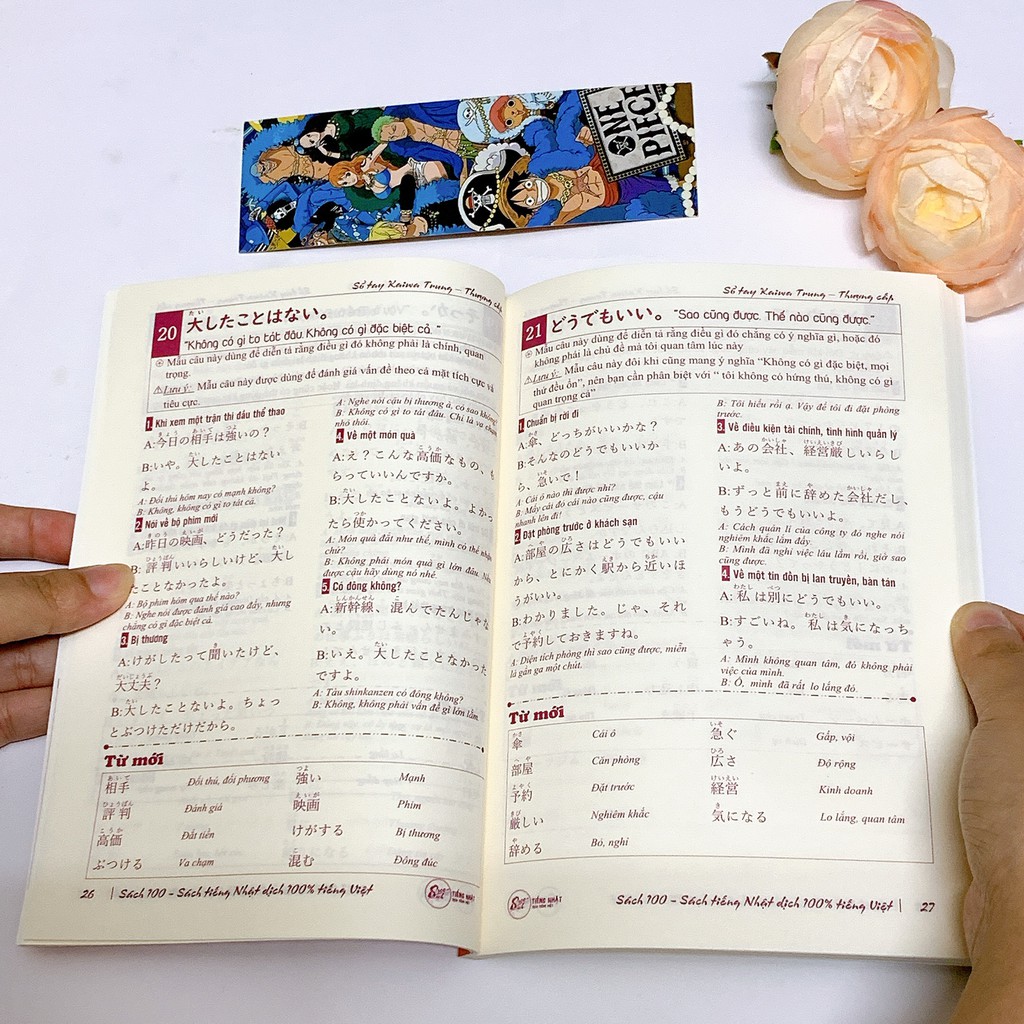 ONE PIECE
Sổ tay Kaiwa Trung – Thượng cấp
20 大したことはない。
"Không có gì to tát đâu. Không có gì đặc biệt cả. "
Mẫu câu này dùng để diễn tả rằng điều gì đó không phải là chính, quan
trọng.
Lưu ý: Mẫu câu này được dùng để đánh giá vấn đề theo cả mặt tích cực và
tiêu cực.
1. Khi xem một trận thi đấu thể thao
A:今日の相手は強いの？
B:いや。大したことはない
よ。
A: Đối thủ hôm nay có mạnh không?
B: Không, không có gì to tát cả.
2. Nói về bộ phim mới
A:昨日の映画、どうだった？
B: 評判いいらしいけど、大し
たことなかったよ。
A: Bộ phim hôm qua thế nào?
B: Nghe nói được đánh giá cao đấy, nhưng
chẳng có gì đặc biệt cả.
3. Bị thương
A:けがしたって聞いたけど、
大丈夫？
B:大したことないよ。ちょっ
とぶつけただけだから。
A: Nghe nói cậu bị thương à, có sao không?
B: Không có gì to tát đâu. Chỉ là va chạm
nhỏ thôi.
4. Về một món quà
A:え？こんな高価なもの、も
らっていいんですか。
B:大したことないよ。よかっ
たら使かってください。
A: Món quà đắt như thế, mình có thể nhận
chứ?
B: Không phải món quà gì lớn đâu. Nếu
được cậu hãy dùng nó nhé.
5. Có đông không?
A:新幹線、混んでたんじゃな
い。
B:いえ。大したことなかった
ですよ。
A: Tàu shinkanzen có đông không?
B: Không, không phải vấn đề gì lớn lắm.
Từ mới
相手 Đối thủ, đối phương 強い Mạnh
評判 Đánh giá 映画 Phim
高価 Đắt tiền けがする Bị thương
ぶつける Va chạm 混む Đông đúc
26 | Sách 100 – Sách tiếng Nhật dịch 100% tiếng Việt
TIẾNG NHẬT
Sổ tay Kaiwa Trung – Thượng cấp
21 どうでもいい。 "Sao cũng được. Thế nào cũng được."
Mẫu câu này dùng để diễn tả rằng điều gì đó chẳng có ý nghĩa gì, hoặc đó
không phải là chủ đề mà tôi quan tâm lúc này
Lưu ý: Mẫu câu này đôi khi cũng mang ý nghĩa "Không có gì đặc biệt, mọi
thứ đều ổn", nên bạn cần phân biệt với " tôi không có hứng thú, không có gì
quan trọng cả"
1. Chuẩn bị rời đi
A:傘、どっちがいいかな？
B:そんなのどうでもいいか
ら、急いで！
A: Cái ô nào thì được nhỉ?
B: Mấy cái đó cái nào cũng được, cậu
nhanh lên đi!
2. Đặt phòng trước ở khách sạn
A:部屋の広さはどうでもいい
から、とにかく駅から近いほ
うがいい。
B:わかりました。じゃ、それ
で予約しておきますね。
A: Diện tích phòng thì sao cũng được, miễn
là gần ga một chút.
B: Tôi hiểu rồi ạ. Vậy để tôi đi đặt phòng
trước.
3. Về điều kiện tài chính, tình hình quản lý
A:あの会社、経営厳しいらし
いよ。
B:ずっと前に辞めた会社だし、
もうどうでもいいよ。
A: Cách quản lí của công ty đó nghe nói
nghiêm khắc lắm đấy.
B: Mình đã nghỉ việc lâu lắm rồi, giờ sao
cũng được.
4. Về một tin đồn bị lan truyền, bàn tán
A: 私は別にどうでもいい。
B:すごいね。私は気になっち
ゃう。
A: Mình không quan tâm, đó không phải
việc của mình.
B: Ồ, mình đã rất lo lắng đó.
Từ mới
傘 Cái ô 急ぐ Gấp, vội
部屋 Căn phòng 広さ Độ rộng
予約 Đặt trước 経営 Kinh doanh
厳しい Nghiêm khắc 気になる Lo lắng, quan tâm
辞める Bỏ, nghỉ
TIẾNG NHẬT
Sách 100 – Sách tiếng Nhật dịch 100% tiếng Việt | 27